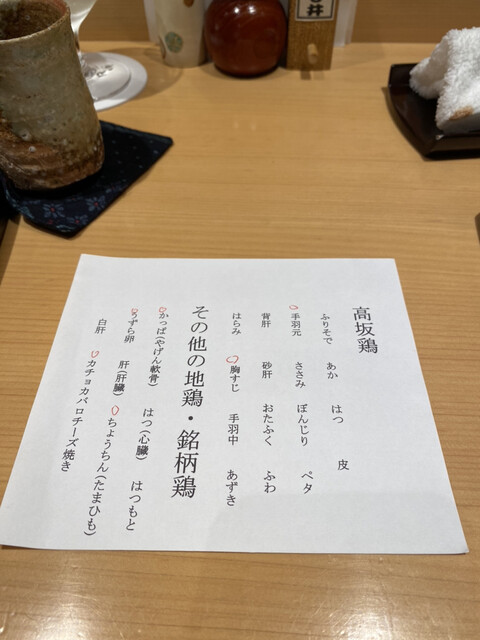 高坂鶏
ふりそで　あか　はつ　皮
手羽元　ささみ　ぼんじり　ペタ
背肝　砂肝　おたふく　ふわ
はらみ　胸すじ　手羽中　あずき
その他の地鶏・銘柄鶏
かっぱ(やげん軟骨)　はつ(心臓)　はつもと
うずら卵　肝(肝臓)　ちょうちん(たまひも)
白肝　カチョカバロチーズ焼き